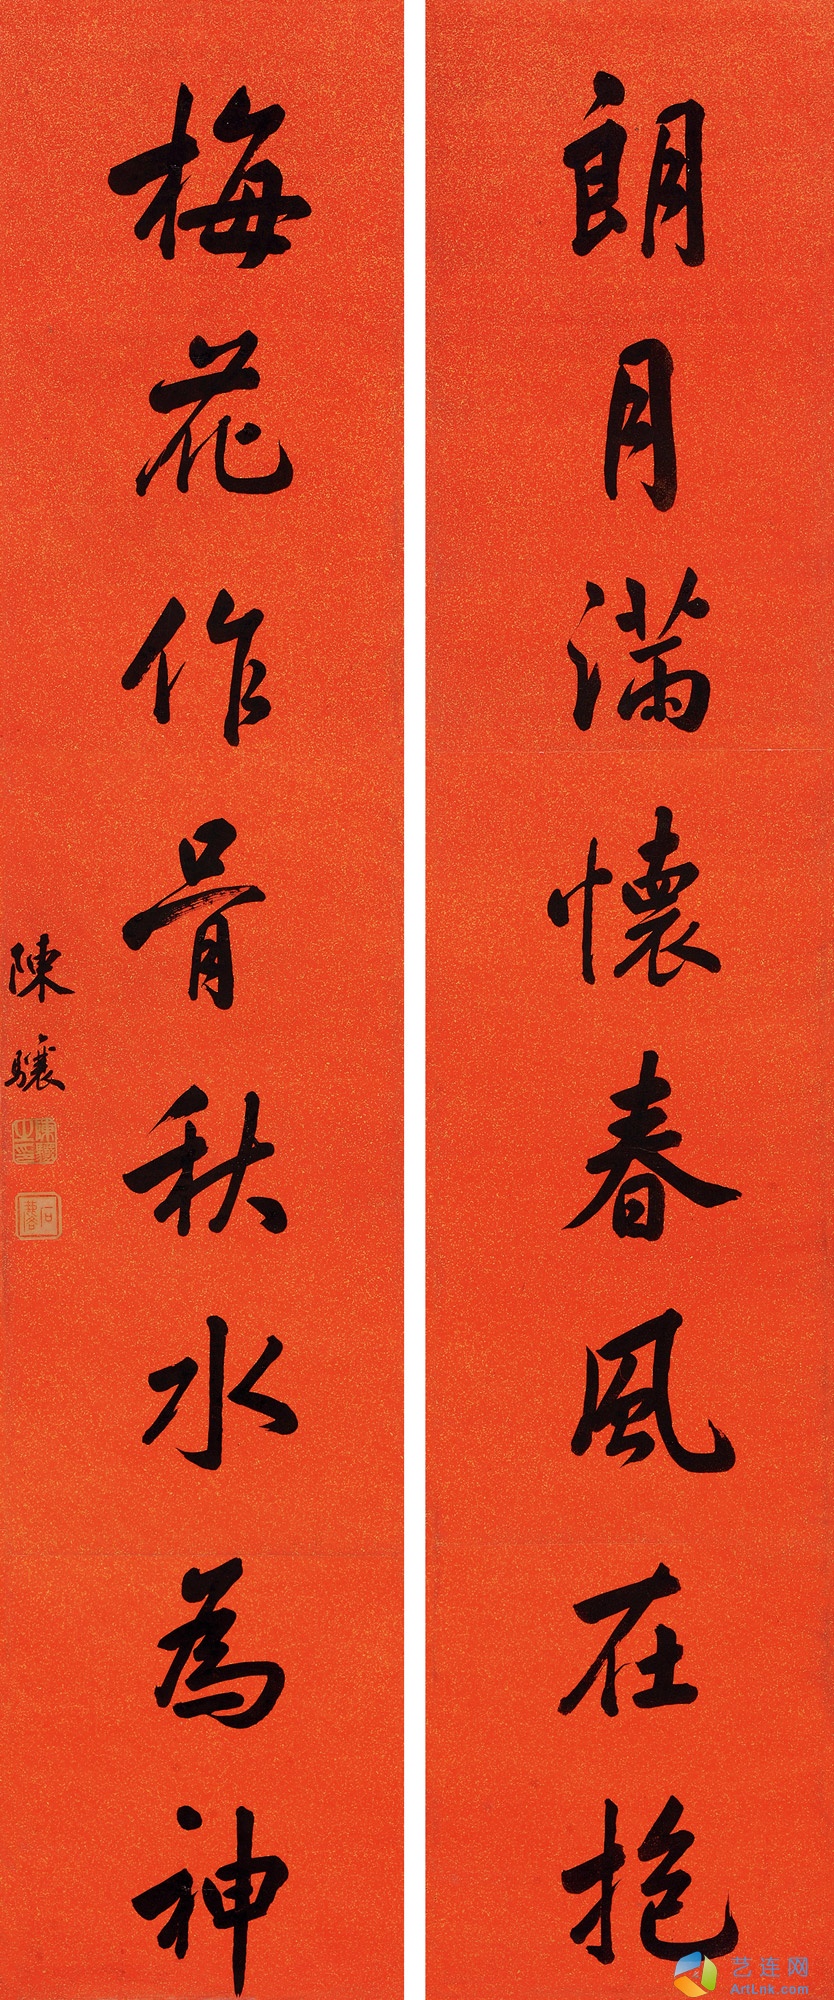 朗月滿懷春風在抱
梅花作骨秋水為神
陳驤
陳驤之印
艺连网
ArtLnk.com